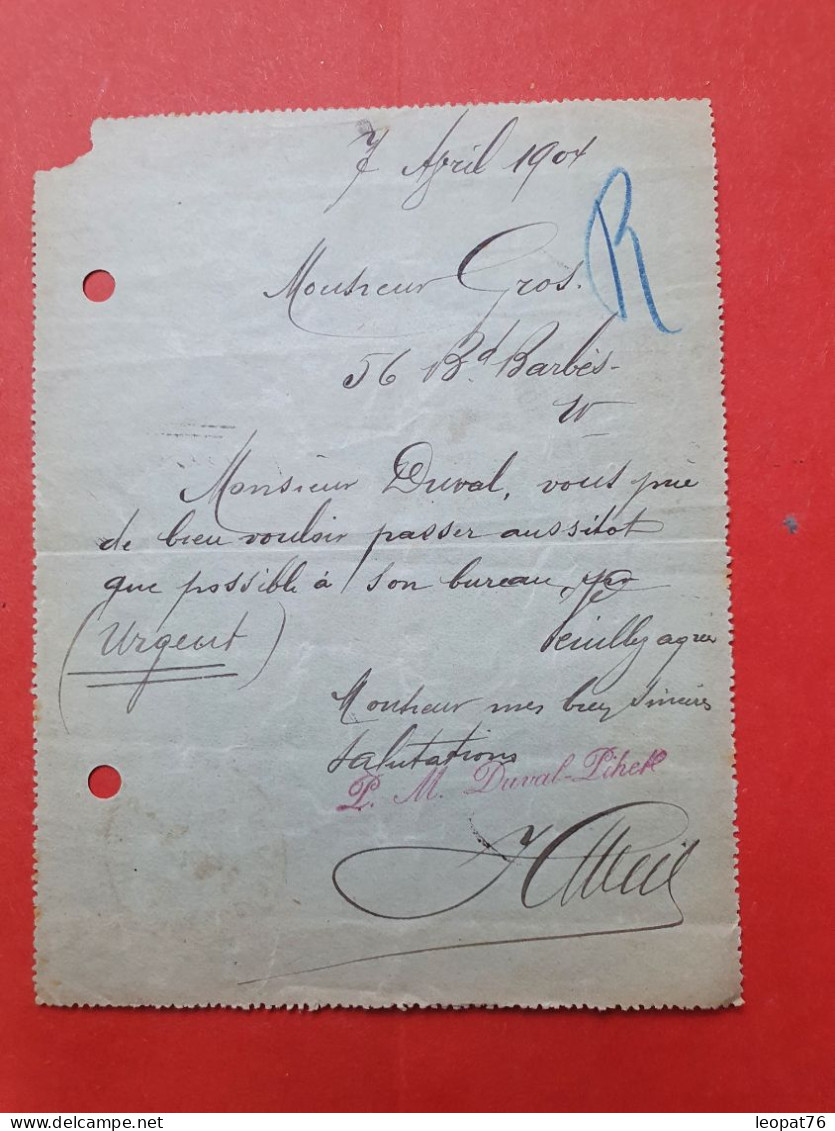 7 Avril 1904
R
Monsieur Gros.
56 Bd Barbès-
Monsieur Duval, vous prie
de bien vouloir passer aussitot
que possible à son bureau,
(Urgent)
Veuillez agréer
Monsieur mes bien sincères
salutations
P. M. Duval-Pihet
leopat76